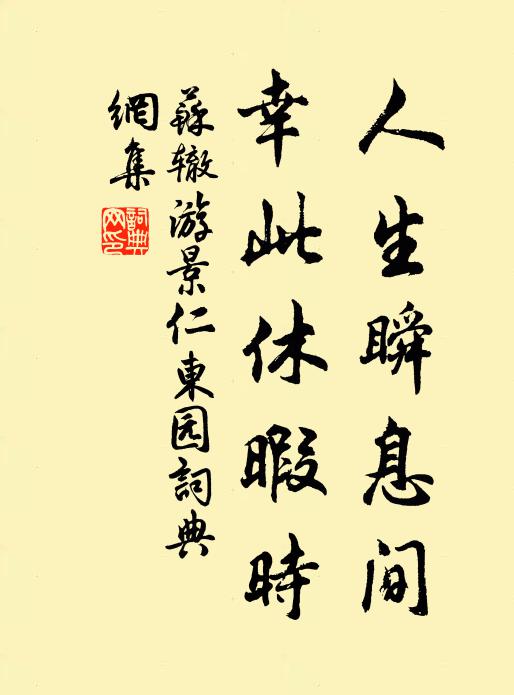 人生瞬息间
幸此休暇時
蘇辙游景仁東园詞典
網集
詞典
网印